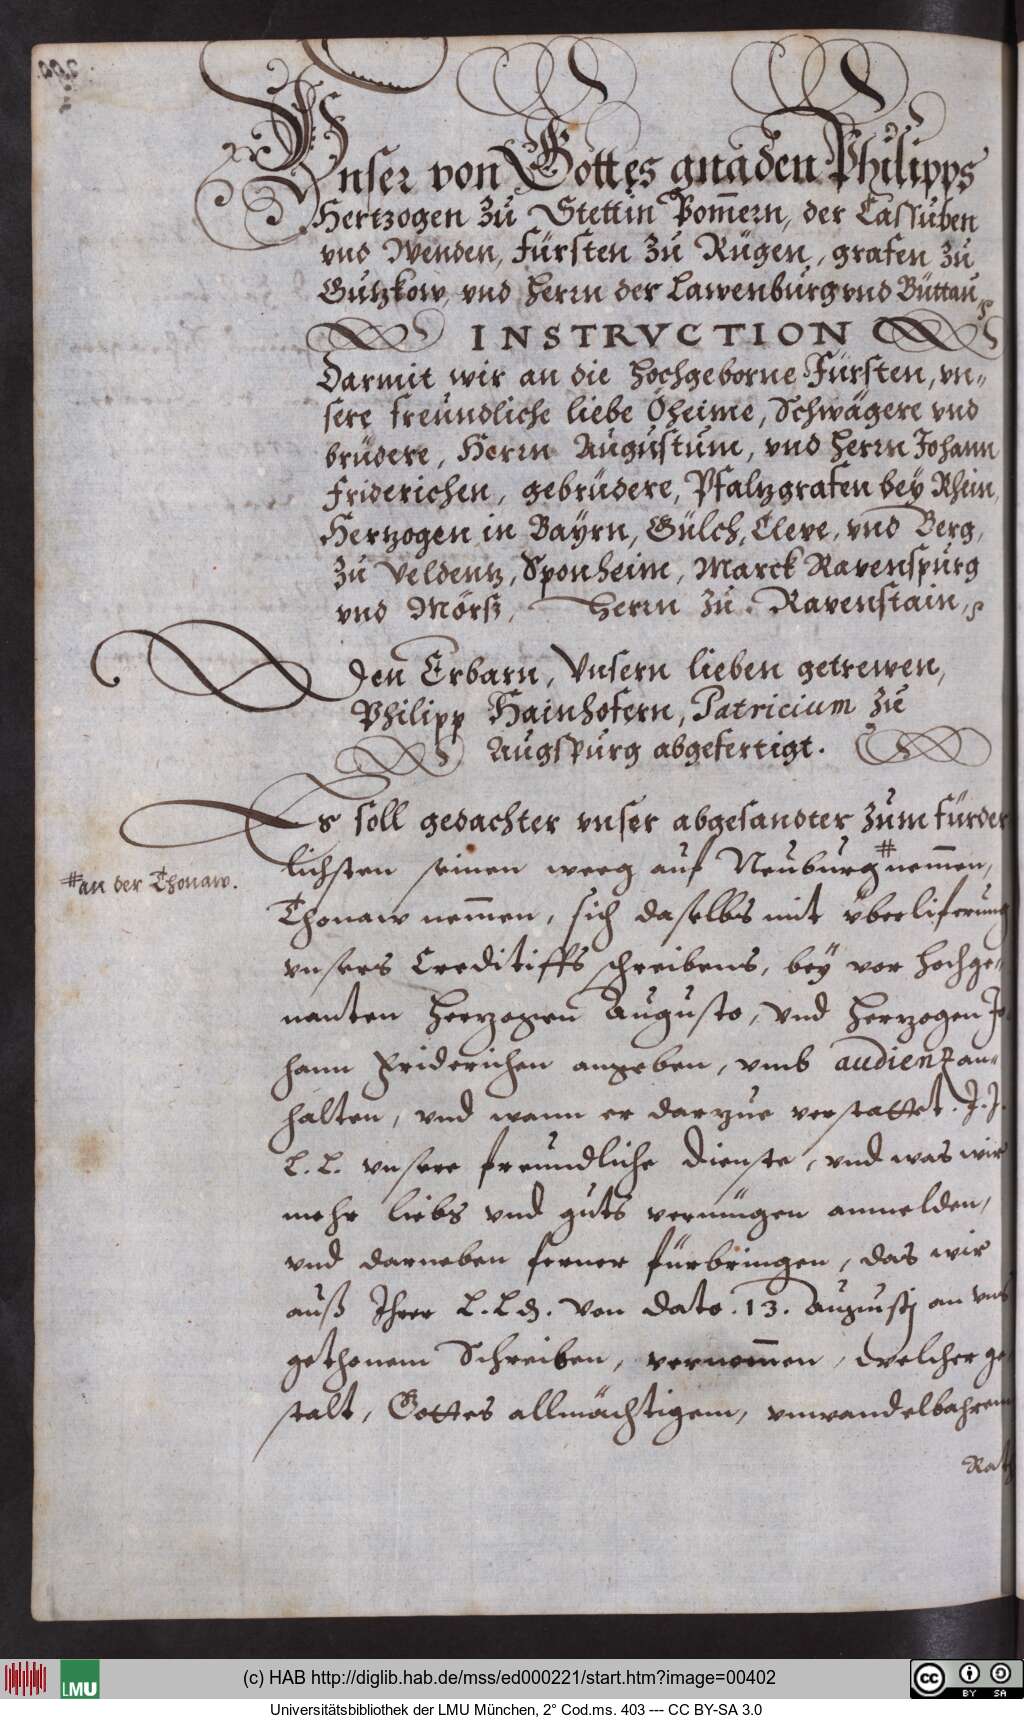 Vnser von Gottes gnaden Philipps
Hertzogen zu Stettin Pom̄ern, der Cassuben
vnd Wenden, Fürsten zu Rügen, grafen zu
Gutzkow, vnd herrn der Lawenburg vnd Büttau,
INSTRVCTION
Darmit wir an die hochgeborne Fürsten, vn„
sere freundliche liebe Öheime, Schwägere vnd
brüdere, Herrn Augustum, vnd herrn Johann
Friderichen, gebrüdere, Pfaltzgrafen bey Rhein,
Hertzogen in Bayrn, Gülch, Cleve, vnd Berg,
zu Veldentz, Sponheim, Marck Ravenspurg
vnd Mörß, Herrn zu Ravenstain,
Den Erbarn, Vnsern lieben getrewen,
Philipp Hainhofern, Patricium zu
Augspurg abgefertigt.
Es soll gedachter vnser abgesandter zum fürder
lichsten seinen weeg auf Neuburg # nem̄en,
#an der Thonaw.
Thonaw nem̄en, sich daselbs mit überliferung
vnsers Creditiffs schreibens, bey vor hochge„
nanten Herzogen Augusto, vnd Herzogen Jo
hann Friderichen angeben, vmb audienz an„
halten, vnd wann er darzue verstattet. J. J.
L. L. vnsere freundliche dienste, vnd was wir
mehr liebs vnd guts vermügen anmelden,
vnd darneben ferner fürbringen, das wir
auß Ihrer L. Ld. von dato. 13. Augustj an vns
gethonem Schreiben, vernom̄en, welcher ge
stalt, Gottes allmächtigem, vnwandelbahrem
Rath